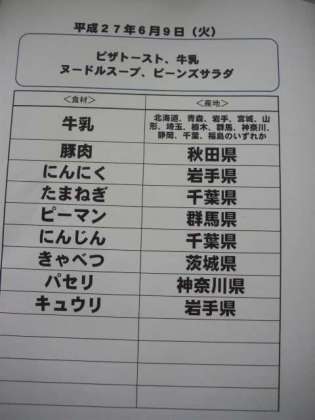 平成27年6月9日（火）
ピザトースト、牛乳
ヌードルスープ、ビーンズサラダ
＜食材＞ ＜産地＞
牛乳 北海道、青森、岩手、宮城、山
形、埼玉、栃木、群馬、神奈川、
静岡、千葉、福島のいずれか
豚肉 秋田県
にんにく 岩手県
たまねぎ 千葉県
ピーマン 群馬県
にんじん 千葉県
きゃべつ 茨城県
パセリ 神奈川県
キュウリ 岩手県